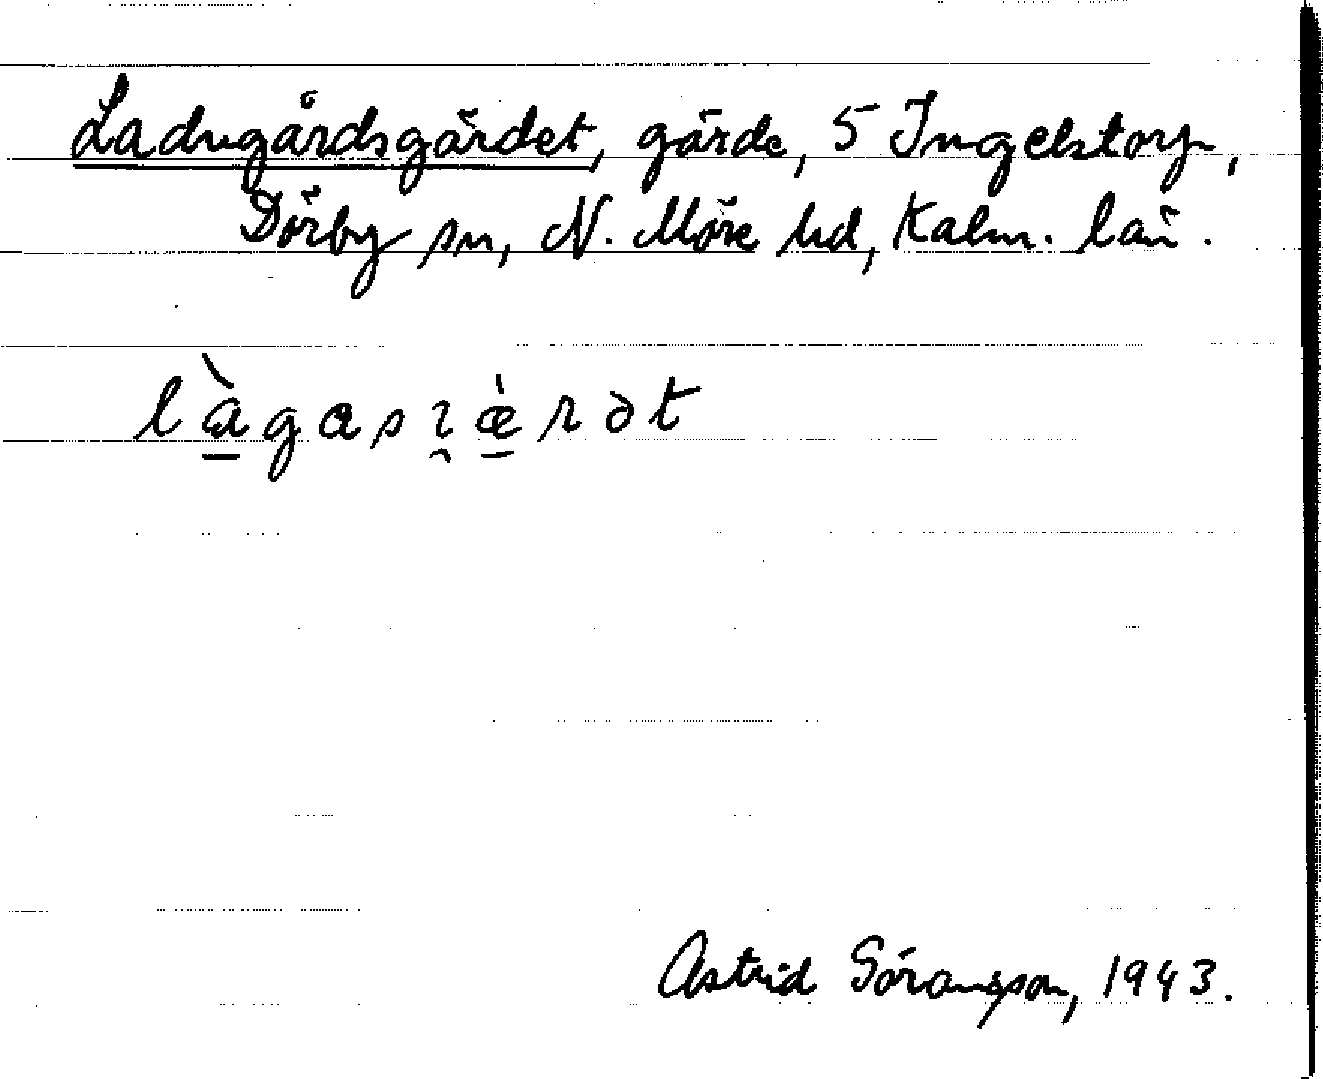 Ladugårdsgärdet, gärde, 5 Ingelstorp,
Dörby sn, N. Möre hd, Kalm. län.
là̱gasɿ̯æ̱̀rət
Astrid Göransson, 1943.